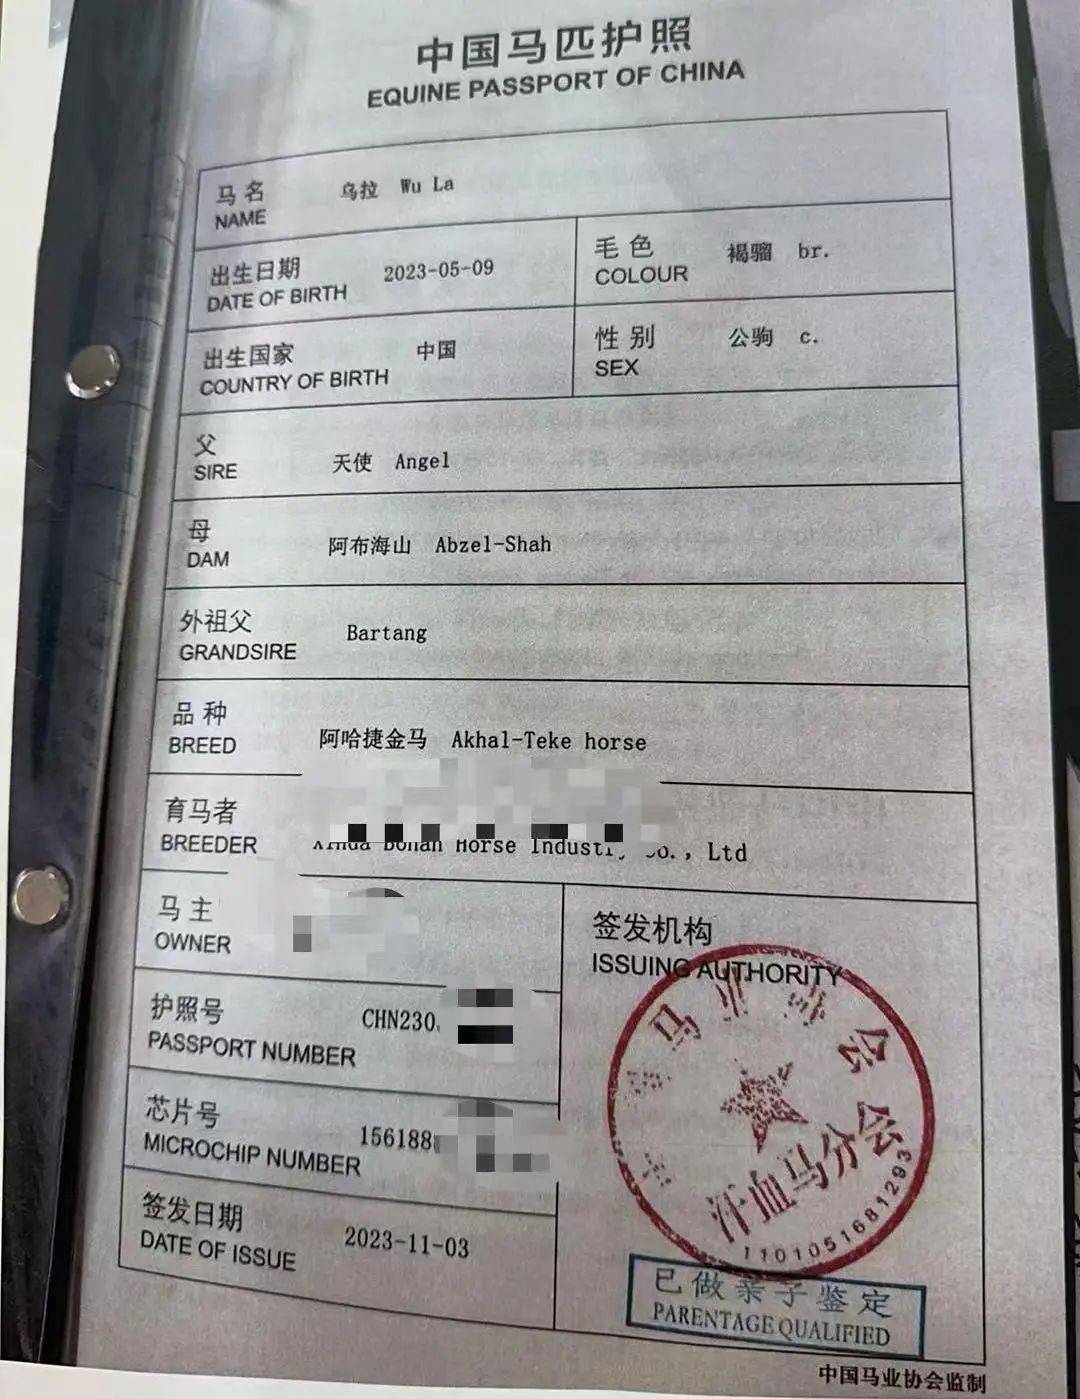 中国马匹护照
EQUINE PASSPORT OF CHINA
马名 乌拉 Wu La
NAME
出生日期 2023-05-09
DATE OF BIRTH
毛色 褐骝 br.
COLOUR
出生国家 中国
COUNTRY OF BIRTH
性别 公驹 c.
SEX
父
SIRE 天使 Angel
母
DAM 阿布海山 Abzel-Shah
外祖父 Bartang
GRANDSIRE
品种
BREED 阿哈捷金马 Akhal-Teke horse
育马者
BREEDER Horse Co., Ltd
马主
OWNER
护照号 CHN230
PASSPORT NUMBER
芯片号 156188
MICROCHIP NUMBER
签发日期 2023-11-03
DATE OF ISSUE
签发机构
ISSUING AUTHORITY
马业协会
汗血马分会
1101051681293
已做亲子鉴定
PARENTAGE QUALIFIED
中国马业协会监制